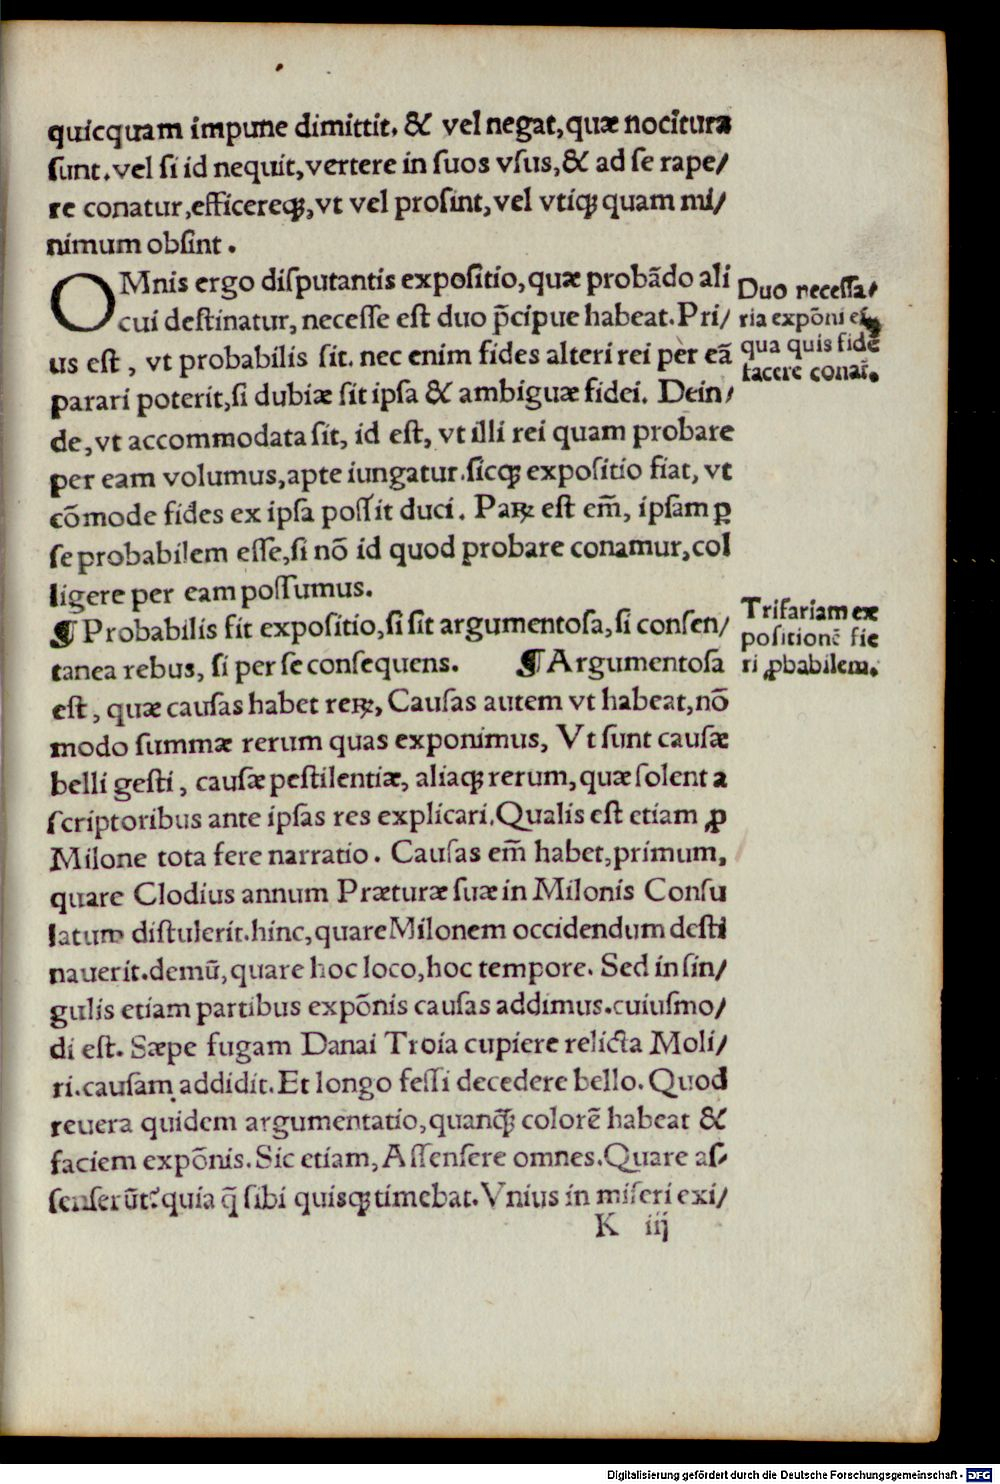 quicquam impune dimittit. & vel negat, quæ nocitura
sunt. vel si id nequit, vertere in suos vsus, & ad se rape/
re conatur, efficereqꝫ, vt vel prosint, vel vtiqꝫ quam mi/
nimum obsint.
OMnis ergo disputantis expositio, quæ probādo ali
cui destinatur, necesse est duo p̄cipue habeat. Pri/
us est, vt probabilis sit. nec enim fides alteri rei per eā
parari poterit, si dubiæ sit ipsa & ambiguæ fidei. Dein/
de, vt accommodata sit, id est, vt illi rei quam probare
per eam volumus, apte iungatur. sicqꝫ expositio fiat, vt
cōmode fides ex ipsa possit duci. Paꝝ est em̄, ipsam ꝑ
se probabilem esse, si nō id quod probare conamur, col
ligere per eam possumus.
Duo necessa/
ria expōni
qua quis fidē
facere conat̄.
¶ Probabilis fit expositio, si sit argumentosa, si consen/
tanea rebus, si per se consequens. ¶ Argumentosa
est, quæ causas habet reꝝ, Causas autem vt habeat, nō
modo summæ rerum quas exponimus, Vt sunt causæ
belli gesti, causæ pestilentiæ, aliaqꝫ rerum, quæ solent a
scriptoribus ante ipsas res explicari. Qualis est etiam ꝓ
Milone tota fere narratio. Causas em̄ habet, primum,
quare Clodius annum Præturæ suæ in Milonis Consu
latum distulerit. hinc, quare Milonem occidendum desti
nauerit. demū, quare hoc loco, hoc tempore. Sed in sin/
gulis etiam partibus expōnis causas addimus. cuiusmo/
di est. Sæpe fugam Danai Troia cupiere relicta Moli/
ri. causam addidit. Et longo fessi decedere bello. Quod
reuera quidem argumentatio, quanqꝫ̄ colorē habeat &
faciem expōnis. Sic etiam, Assensere omnes. Quare as/
senserūt? quia q̄ sibi quisqꝫ timebat. Vnius in miseri exi/
Trifariam ex
positionē fie
ri ꝓbabilem.
K iij
Digitalisierung gefördert durch die Deutsche Forschungsgemeinschaft - DFG